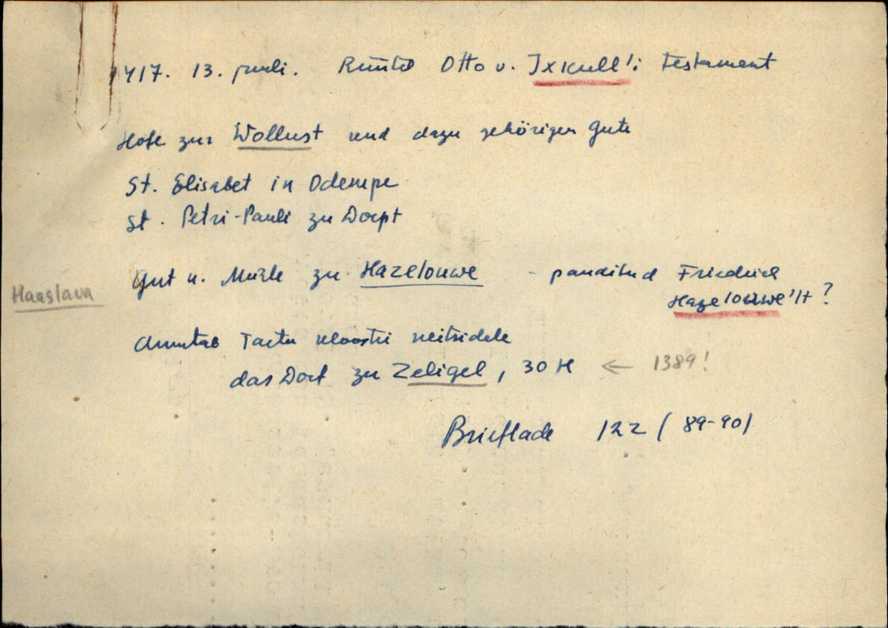 1417. 13. juuli. Rüütel Otto v. Ixkull'i Testament
Hofe zur Wollust und dazu gehörigen Gute
St. Elisabet in Odempe
St. Petri-Pauli zu Dorpt
Gut u. Mühle zu Hazelouwe - panditud Friedrich
Haselouwe'lt?
Haaslava
Annetab Tartu kloostri neitsidele
das Dorf zu Zeligel, 30 H ← 1389!
Brieflade 122 (89-90)